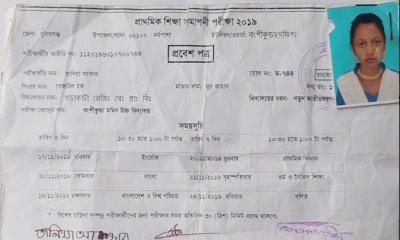 প্রাথমিক শিক্ষা সমাপনী পরীক্ষা ২০১৯
জেলা: সুনামগঞ্জ উপজেলা/থানা: ০০১০৭ ধর্মপাশা ইউনিয়ন/ওয়ার্ড: বংশীকুন্ডা(দক্ষিন)
পরীক্ষার্থীর আইডি নং: ১১২০১৯৬০১০৭০০৭৪৪
প্রবেশ পত্র
পরীক্ষার্থীর নাম: তানিয়া আক্তার রোল নং: ম-৭৪৪
পিতার নাম: মাতার নাম: নুর জাহান
বিদ্যালয়ের নাম: গড়াকাটা রেজি: বে: প্রা: বি: বিদ্যালয়ের ধরন: নতুন
পরীক্ষা কেন্দ্রের নাম: বংশীকুন্ডা মমিন উচ্চ বিদ্যালয়
সময়সূচি
তারিখ ও দিন ১০:৩০ হতে ১:০০ টা পর্যন্ত তারিখ ও দিন ১০:৩০ হতে ১:০০ টা পর্যন্ত
১৭/১১/২০১৯ রবিবার ইংরেজি ২০/১১/২০১৯ বুধবার প্রাথমিক বিজ্ঞান
১৮/১১/২০১৯ সোমবার বাংলা ২১/১১/২০১৯ বৃহস্পতিবার ধর্ম ও নৈতিক শিক্ষা
১৯/১১/২০১৯ মঙ্গলবার বাংলাদেশ ও বিশ্ব পরিচয় ২৪/১১/২০১৯ রবিবার গণিত
* বিশেষ চাহিদা সম্পন্ন পরীক্ষার্থীদের জন্য পরীক্ষার সময় অতিরিক্ত ৩০ (ত্রিশ) মিনিট বরাদ্দ থাকবে।
তানিয়া আক্তার